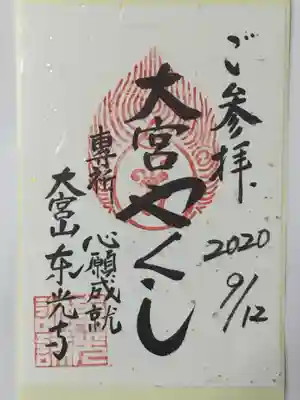 ご参拝
2020
9/12
大宮やくし
専行
心願成就
大宮山东光寺